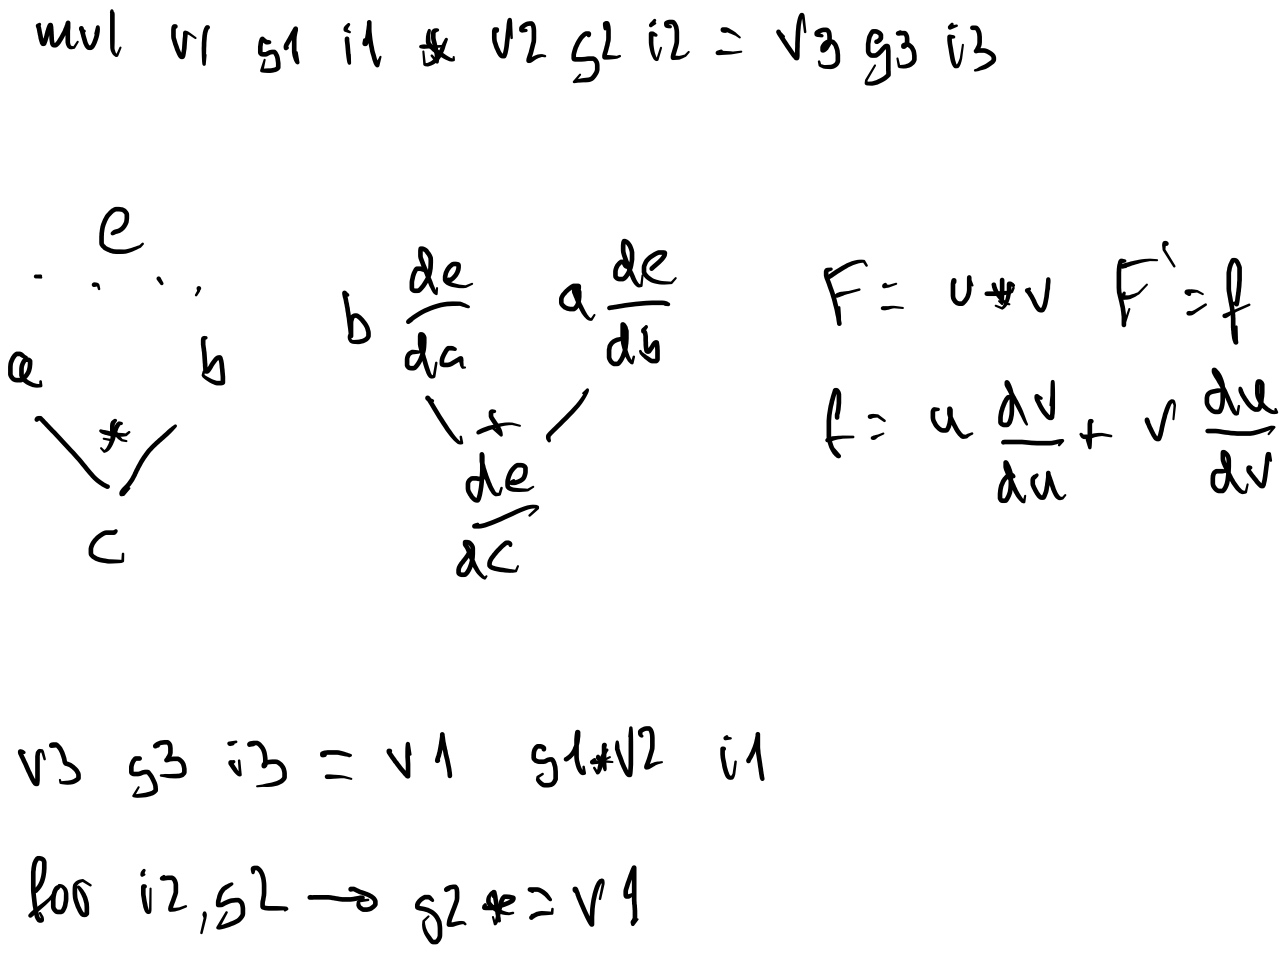 mul v1 g1 i1 * v2 g2 i2 = v3 g3 i3
e
a b
*
c
b de/da a de/db
+
de/dc
F = u * v F' = f
f = u dv/du + v du/dv
v3 g3 i3 = v1 g1*v2 i1
for i2, g2 → g2 *= v1